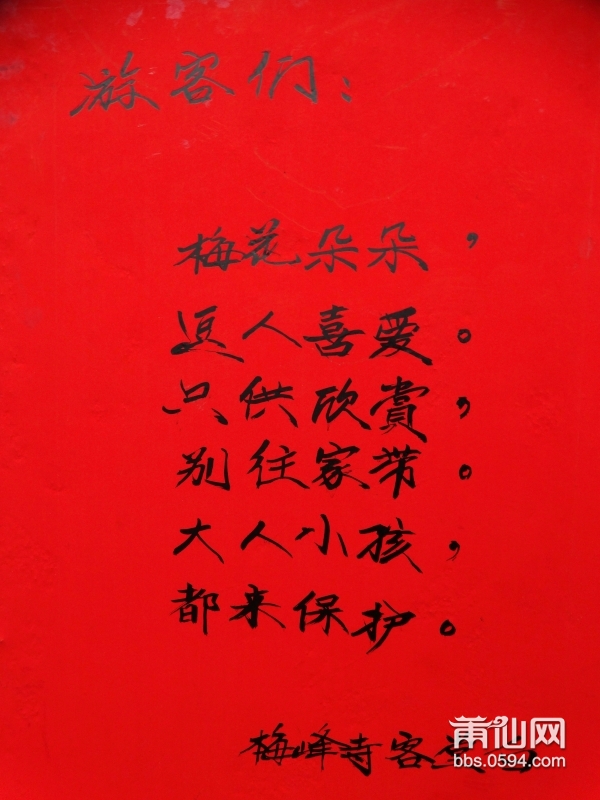 游客们：
梅花朵朵，
逗人喜爱。
只供欣賞，
别往家带。
大人小孩，
都来保护。
梅峰寺客堂
莆仙网
bbs.0594.com